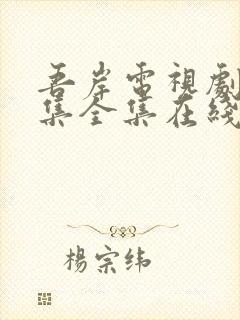 吾岸電視劇
集全集在綫
楊宗纬